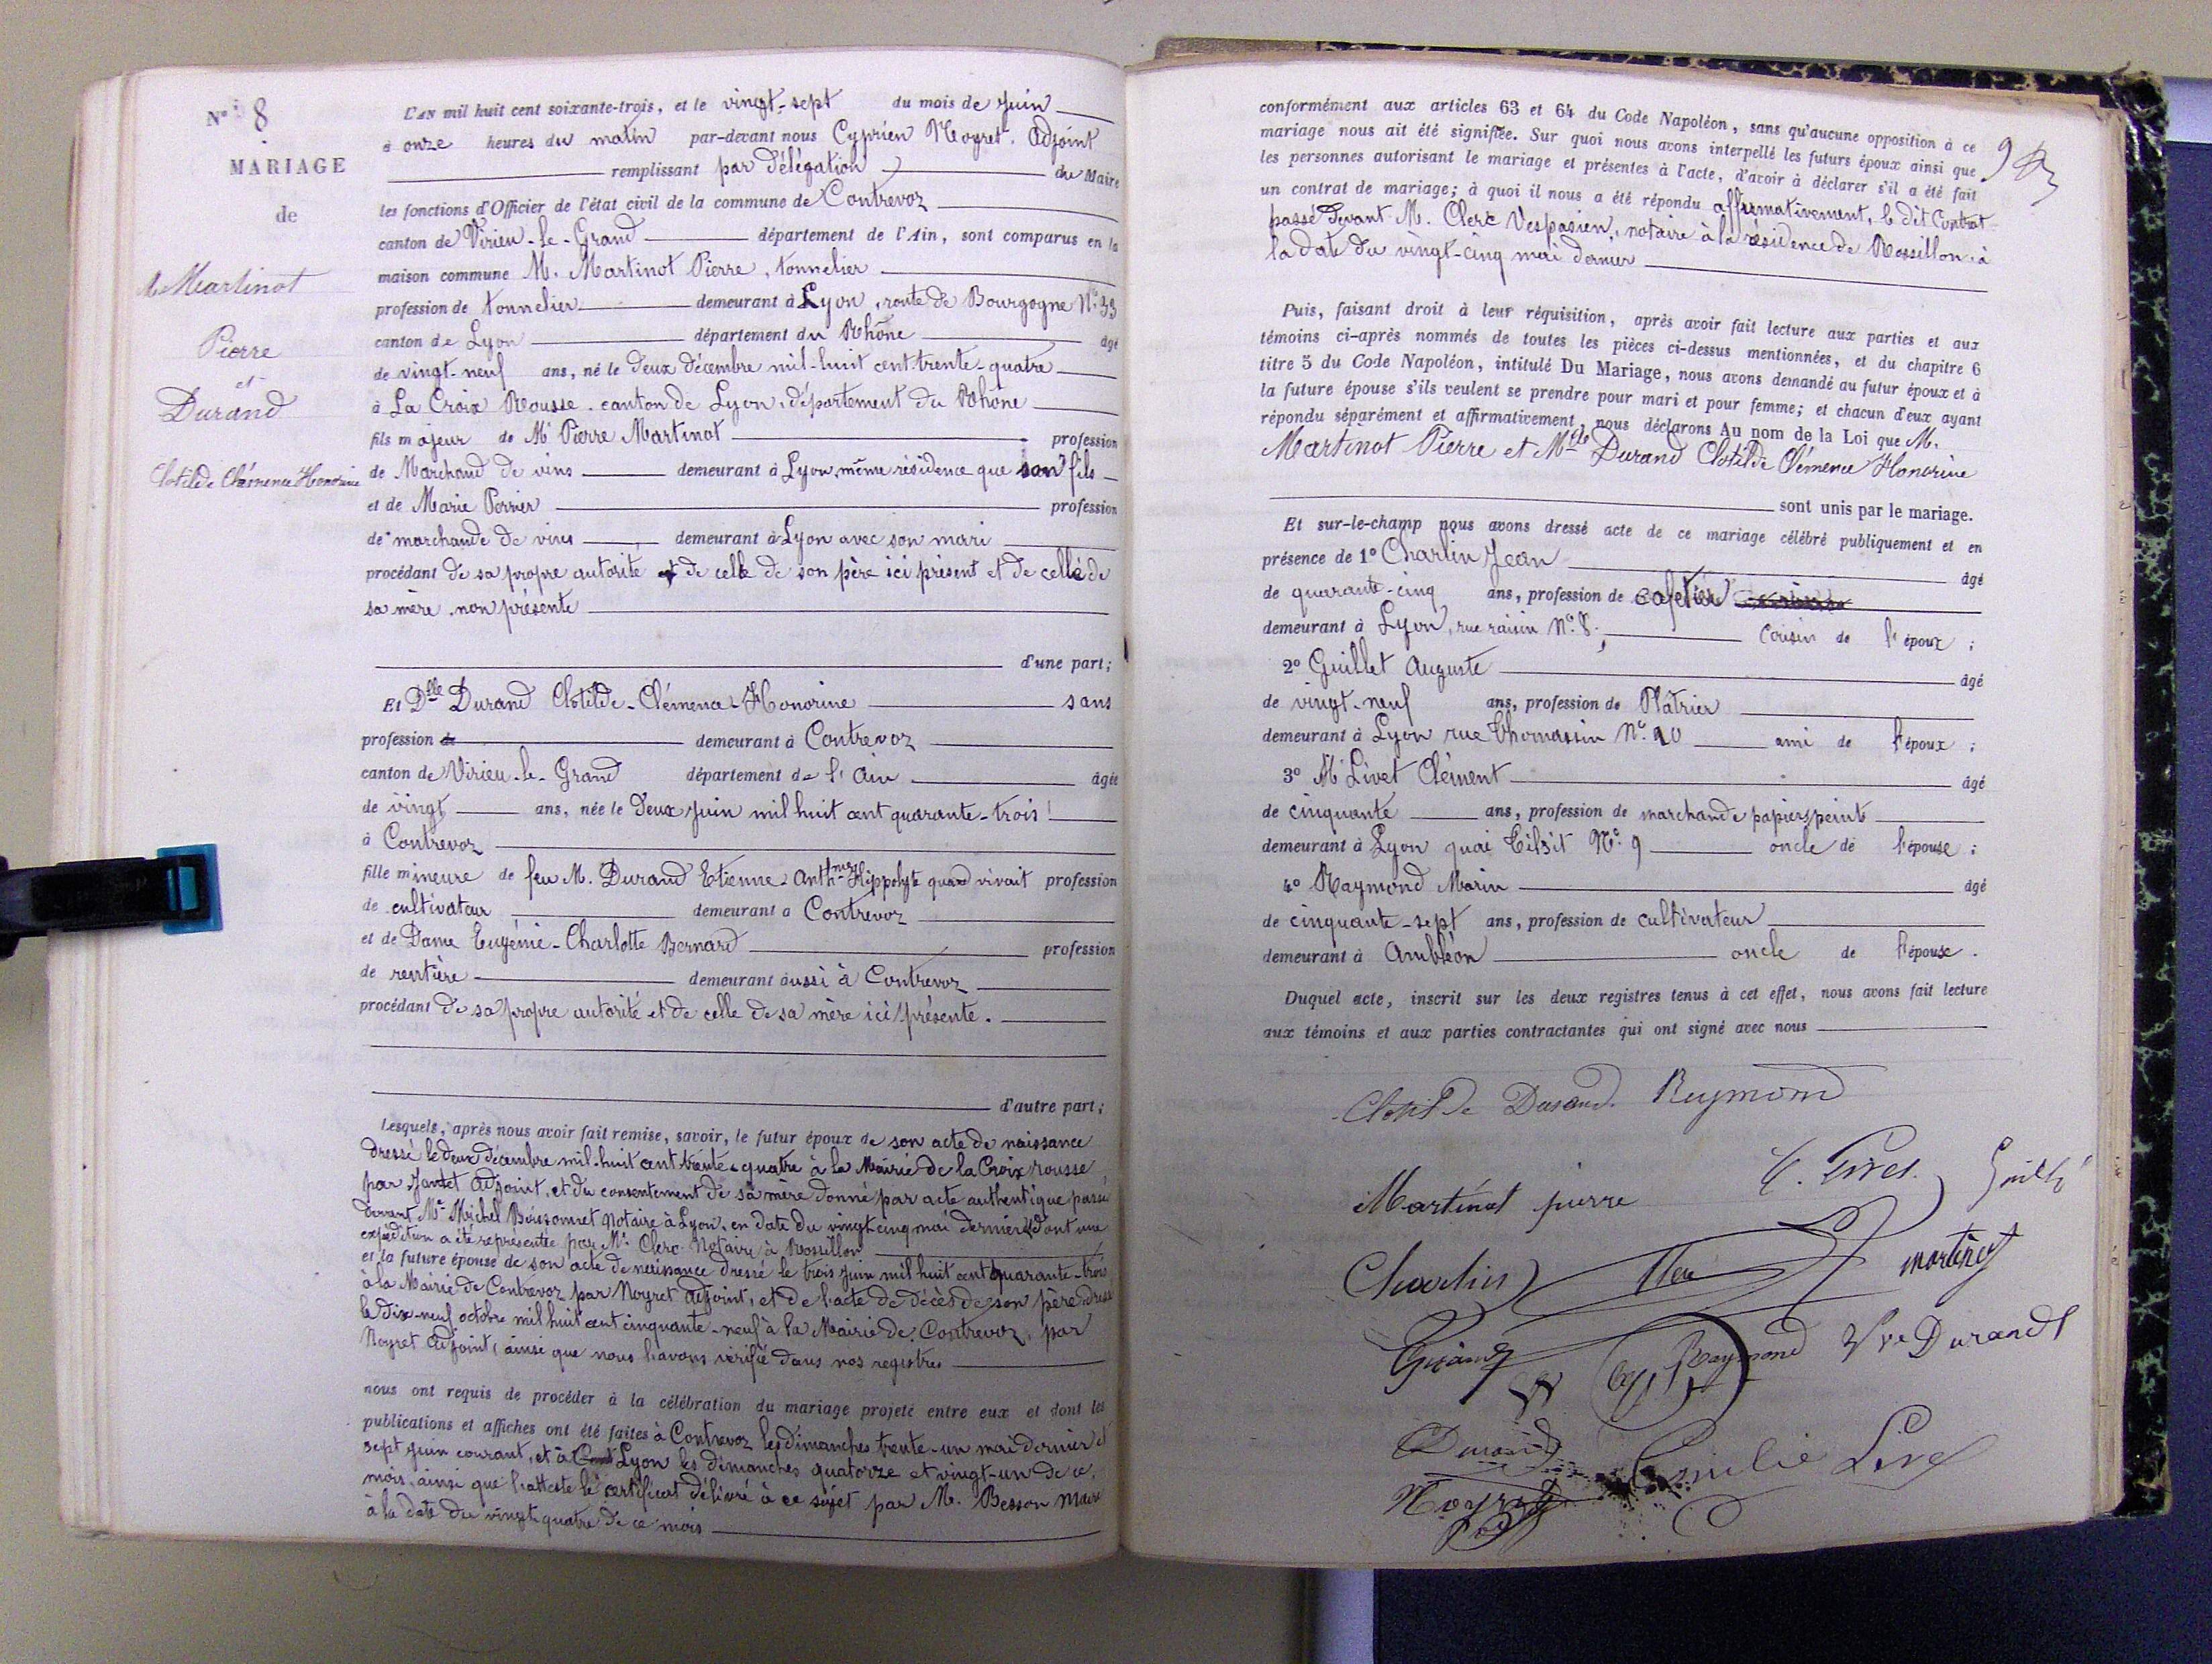 N° 8
MARIAGE
de
Martinot
Pierre
et
Durand
Clotilde Clémence Honorine
L'AN mil huit cent soixante-trois, et le vingt-sept du mois de Juin
à onze heures du matin par-devant nous Cyprien Noyret, Adjoint
remplissant par délégation du Maire
les fonctions d'Officier de l'état civil de la commune de Contrevoz
canton de Virieu-le-Grand département de l'Ain, sont comparus en la
maison commune M. Martinot Pierre, tonnelier
profession de tonnelier demeurant à Lyon, route de Bourgogne N° 33
canton de Lyon département du Rhône âgé
de vingt-neuf ans, né le deux décembre mil-huit cent trente-quatre
à La Croix Rousse, canton de Lyon, département du Rhône
fils majeur de Mr Pierre Martinot profession
de Marchand de vins demeurant à Lyon, même résidence que son fils
et de Marie Perrier profession
de marchande de vins demeurant à Lyon avec son mari
procédant de sa propre autorité et de celle de son père ici présent et de celle de
sa mère, non présente
d'une part;
Et Dlle Durand Clotilde-Clémence-Honorine sans
profession de demeurant à Contrevoz
canton de Virieu-le-Grand département de l'Ain âgée
de vingt ans, née le deux Juin mil huit cent quarante-trois
à Contrevoz
fille mineure de feu M. Durand Etienne-Anthme Hippolyte quand vivait profession
de cultivateur demeurant à Contrevoz
et de Dame Eugénie-Charlotte Bernard profession
de rentière demeurant aussi à Contrevoz
procédant de sa propre autorité et de celle de sa mère ici présente.
d'autre part;
Lesquels, après nous avoir fait remise, savoir, le futur époux de son acte de naissance
dressé le deux décembre mil-huit cent trente-quatre à la Mairie de la Croix rousse
par Jantet Adjoint, et du consentement de sa mère donné par acte authentique passé
devant Me Michel Boissonnet Notaire à Lyon, en date du vingt-cinq mai dernier, dont une
expédition a été représentée par Me Clerc Notaire à Rossillon
et la future épouse de son acte de naissance dressé le trois Juin mil huit cent quarante-trois
à la Mairie de Contrevoz par Noyret Adjoint, et de l'acte de décès de son père dressé
le dix-neuf octobre mil huit cent cinquante-neuf à la Mairie de Contrevoz, par
Noyret Adjoint, ainsi que nous l'avons vérifié dans nos registres
nous ont requis de procéder à la célébration du mariage projeté entre eux et dont les
publications et affiches ont été faites à Contrevoz les dimanches trente-un mai dernier et
sept Juin courant, et à Lyon les dimanches quatorze et vingt-un de ce
mois, ainsi que l'atteste le certificat délivré à ce sujet par M. Besson Maire
à la date du vingt-quatre de ce mois
conformément aux articles 63 et 64 du Code Napoléon, sans qu'aucune opposition à ce
mariage nous ait été signifiée. Sur quoi nous avons interpellé les futurs époux ainsi que
les personnes autorisant le mariage et présentes à l'acte, d'avoir à déclarer s'il a été fait
un contrat de mariage; à quoi il nous a été répondu affirmativement, le dit Contrat
passé devant M. Clerc Vespasien, notaire à la résidence de Rossillon, à
la date du vingt-cinq mai dernier
Puis, faisant droit à leur réquisition, après avoir fait lecture aux parties et aux
témoins ci-après nommés de toutes les pièces ci-dessus mentionnées, et du chapitre 6
titre 5 du Code Napoléon, intitulé Du Mariage, nous avons demandé au futur époux et à
la future épouse s'ils veulent se prendre pour mari et pour femme; et chacun d'eux ayant
répondu séparément et affirmativement, nous déclarons Au nom de la Loi que M.
Martinot Pierre et Mlle Durand Clotilde Clémence Honorine
sont unis par le mariage.
Et sur-le-champ nous avons dressé acte de ce mariage célébré publiquement et en
présence de 1° Charlin Jean âgé
de quarante-cinq ans, profession de cafetier
demeurant à Lyon, rue raisin N° 8 Cousin de l'époux;
2° Guillet Auguste âgé
de vingt-neuf ans, profession de Plâtrier
demeurant à Lyon rue Thomassin N° 20 ami de l'époux;
3° Mr Livet Clément âgé
de cinquante ans, profession de marchand de papiers peints
demeurant à Lyon quai Tilsit N° 9 oncle de l'épouse;
4° Raymond Marin âgé
de cinquante-sept ans, profession de cultivateur
demeurant à Ambléon oncle de l'épouse.
Duquel acte, inscrit sur les deux registres tenus à cet effet, nous avons fait lecture
aux témoins et aux parties contractantes qui ont signé avec nous
Clotilde Durand Reymond
Martinot pierre C. Livet
Charlin martinot
Raymond Vve Durand
Durand Emilie Livet
Noyret